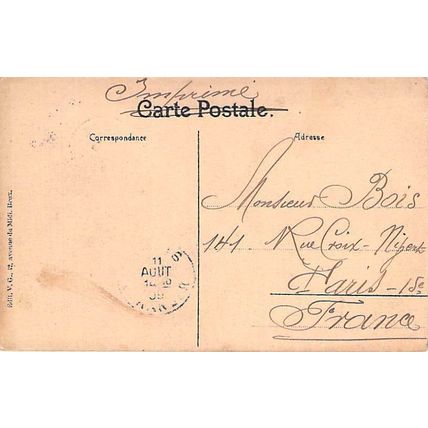 Imprimé
Carte Postale.
Correspondance
Adresse
Monsieur Bois
141 Rue Croix-Nivert
Paris - 15e
France
11
AOUT
Edit. V. G., 12, avenue du Midi, Brux.